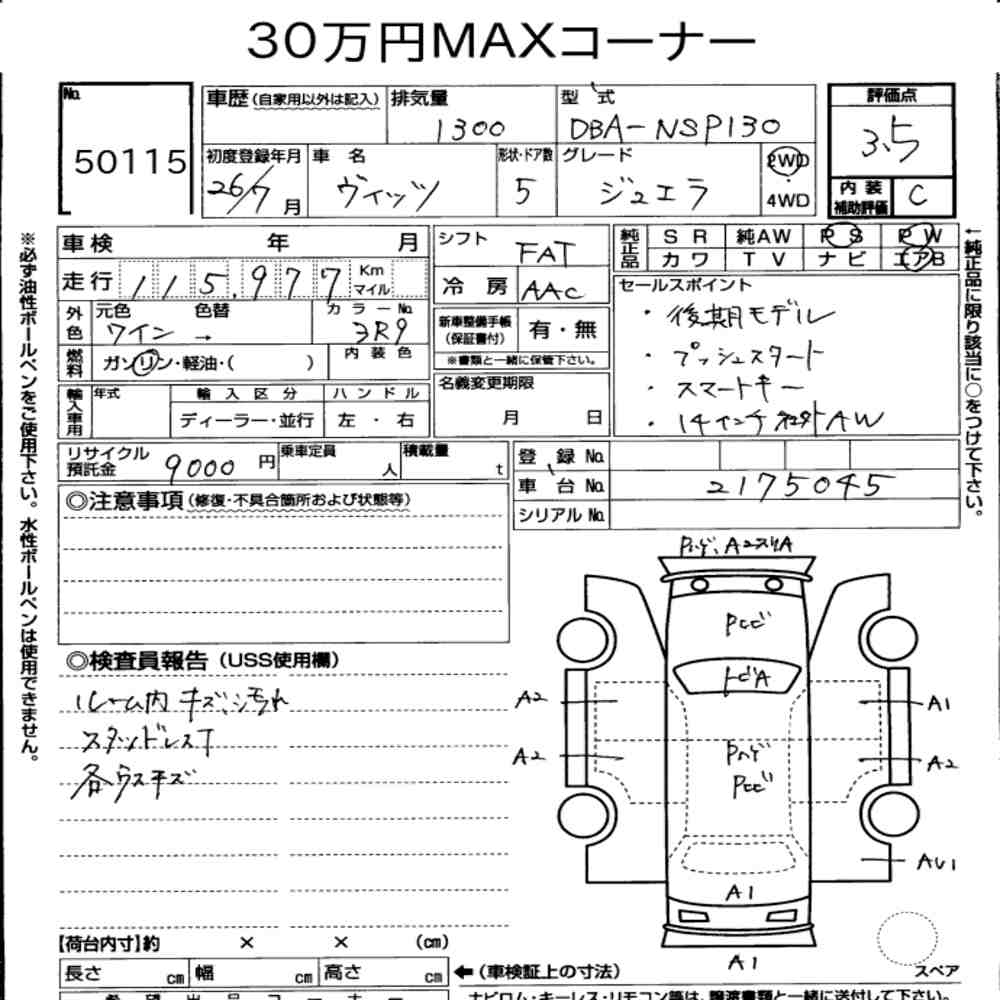 30万円MAXコーナー
No.
50115
車歴(自家用以外は記入)
排気量
1300
型式
DBA-NSP130
評価点
3.5
初度登録年月
26/7月
車名
ヴィッツ
形状・ドア数
5
グレード
ジュエラ
2WD
4WD
内装補助評価
C
※必ず油性ボールペンをご使用下さい。水性ボールペンは使用できません。
車検 年 月
シフト
FAT
純正品
SR 純AW PS PW
カワ TV ナビ エアB
走行
115,977
Km
マイル
冷房
AAC
セールスポイント
・後期モデル
・プッシュスタート
・スマートキー
・14インチ AW
←純正品に限り該当に○をつけて下さい。
外色
元色 色替
ワイン →
カラーNo.
3R9
新車整備手帳(保証書付)
有・無
※書類と一緒に保管下さい。
燃料
ガソリン・軽油・( )
内装色
輸入車用
年式
輸入区分
ハンドル
ディーラー・並行
左・右
名義変更期限
月 日
リサイクル預託金
9000円
乗車定員
人
積載量
t
登録No.
車台No.
2175045
シリアルNo.
◎注意事項(修復・不具合箇所および状態等)
◎検査員報告(USS使用欄)
ルーム内キズ、汚れ
スタッドレスT
各ウスキズ
Pハゲ、A2スリA
Pとび
トビA
Pハゲ
Pとび
A2
A1
A2
A2
AU1
A1
A1
スペア
【荷台内寸】約 × × (cm)
長さ cm 幅 cm 高さ cm
←(車検証上の寸法)
希望出品コーナー
ナビロム・キーレス・リモコン等は、譲渡書類と一緒に送付して下さい。